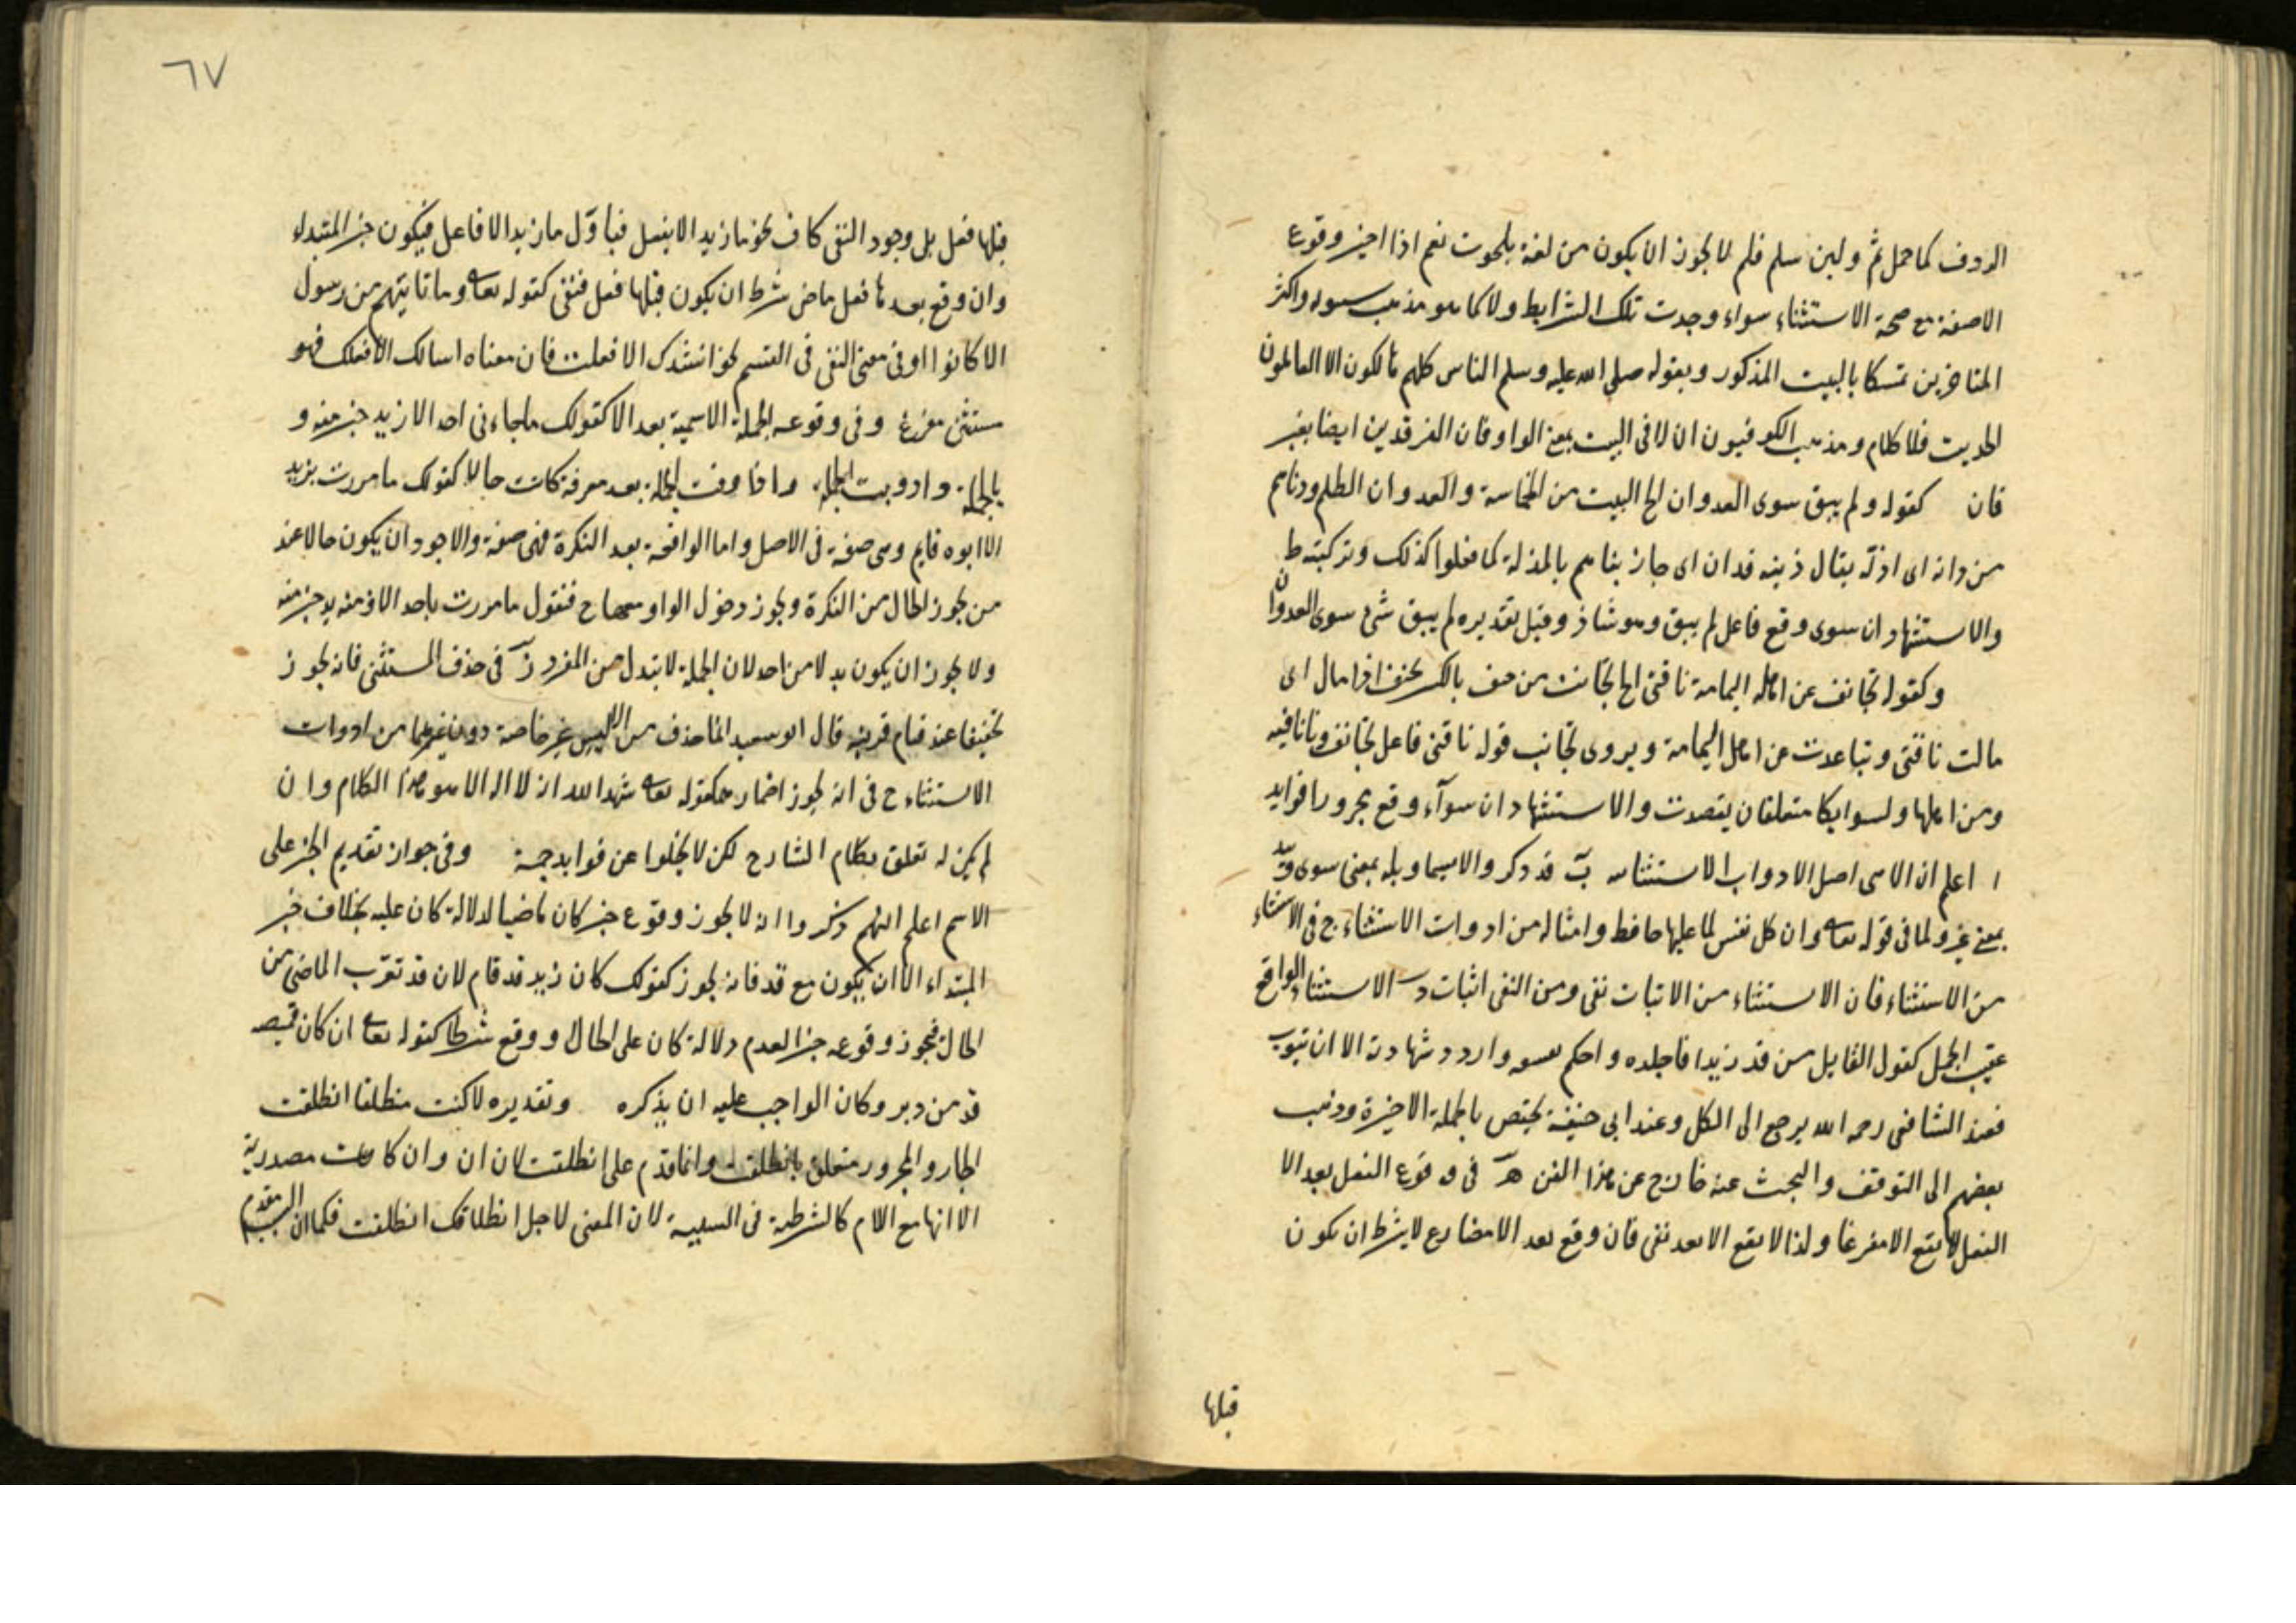 الردف كما حمل ثم ولين سلم فلم لا يجوز ان يكون من لغة بلحوت نعم اذا اجيز وقوع
الا صفة مع صحة الاستثناء سواء وجدت تلك الشرايط ولا كما هو مذهب سيبويه واكثر
المتاخرين تمسكا بالبيت المذكور وبقوله صلى الله عليه وسلم الناس كلهم هالكون الا العالمون
الحديث فلا كلام ومذهب الكوفيون ان الا فى البيت بمعنى الواو فان الفرقدين ايضا بغير
فان كقوله ولم يبق سوى العدوان الخ البيت من الحماسة والعدوان الظلم ودناهم
من دانه اى اذله يقال دينه فدان اى جازيناهم بالمذلة كما فعلوا كذلك وتركيبه ط
والاستشهاد ان سوى وقع فاعل لم يبق وهو شاذ وقيل تقديره لم يبق شئ سوى العدوان
وكقوله تجانف عن اهل اليمامة ناقتى الخ تجانفت من جنف بالكسر يجنف اذا مال اى
مالت ناقتى وتباعدت عن اهل اليمامة ويروى تجانب قوله ناقتى فاعل تجانف وما نافيه
ومن اهلها ولسوايكا متعلقان بقصدت والاستشهاد ان سوآء وقع مجرورا فوايد
ا اعلم ان الا هى اصل الادوات الاستثنائيه ب قد ذكر والاسيما وبله بمعنى سوى
بمعنى غير ولما فى قوله تعالى وان كل نفس لما عليها حافظ وامثاله من ادوات الاستثناء ج فى الاستثناء
من الاستثناء فان الاستثناء من الاثبات نفى ومن النفى اثبات د الاستثناء الواقع
عقيب الجمل كقول القايل من قذف زيدا فاجلده واحكم بفسقه واردد شهادته الا ان يتوب
فعند الشافعى رحمه الله يرجع الى الكل وعند ابى حنيفة يختص بالجملة الاخيرة وذهب
بعضهم الى التوقف والبحث عنه خارج عن هذا الفن ه فى وقوع الفعل بعد الا
الفعل لا يقع الا مفرغا ولذا لا يقع الا بعد نفى فان وقع بعد الا مضارع لا يشرط ان يكون
قبلها
٦٧
قبلها فعل بل وجود النفى كاف نحو ما زيد الا يفعل فيأوّل ما زيد الا فاعل فيكون خبر المبتداء
وان وقع بعدها فعل ماض شرط ان يكون قبلها فعل منفى كقوله تعالى وما تاتيهم من رسول
الا كانوا او فى معنى النفى فى القسم نحو انشدك الا فعلت فان معناه اسالك الا فعلك فهو
مستثنى مفرغ و فى وقوعه الجملة الاسمية بعد الا كقولك ما جاءنى احد الا زيد خير منه و
بالجملة واذا وقعت الجملة بعد معرفة كانت حالا كقولك ما مررت بزيد
الا ابوه قايم وهى صفة فى الاصل واما الواقعة بعد النكرة فهى صفة والاجود ان يكون حالا عند
من يجوز الحال من النكرة ويجوز دخول الواو معها ح فتقول ما مررت باحد الا وزيد خير منه
ولا يجوز ان يكون بدلا من احد لان الجملة لا تبدل من المفرد ز فى حذف المستثنى فانه يجوز
تخفيفا عند قيام قرينه قال ابو سعيد انما حذف من الا ليس غير خاصة دون غيرهما من ادوات
الاستثناء ح فى انه يجوز اضمار كقوله تعالى شهد الله انه لا اله الا هو هذا الكلام وان
لم يكن له تعلق بكلام الشارح لكن لا يخلوا عن فوايد جمة وفى جواز تقديم الخبر على
الاسم اعلم انهم ذكروا انه لا يجوز وقوع خبر كان ماضيا لدلالة كان عليه بخلاف خبر
المبتداء الا ان يكون مع قد فانه يجوز كقولك كان زيد قد قام لان قد تقرّب الماضى من
الحال فيجوز وقوعه خبر لعدم دلالة كان على الحال او وقع شرطا كقوله تعالى ان كان قميصه
قد من دبر وكان الواجب عليه ان يذكره وتقديره لا كنت منطلقا انطلقت
الجار والمجرور متعلق بانطلقت وانما قدم على انطلقت لان ان وان كانت مصدرية
الا انها مع اللام كالشرطية فى السببية لان المعنى لاجل انطلاقك انطلقت فكما ان السبب مقدم